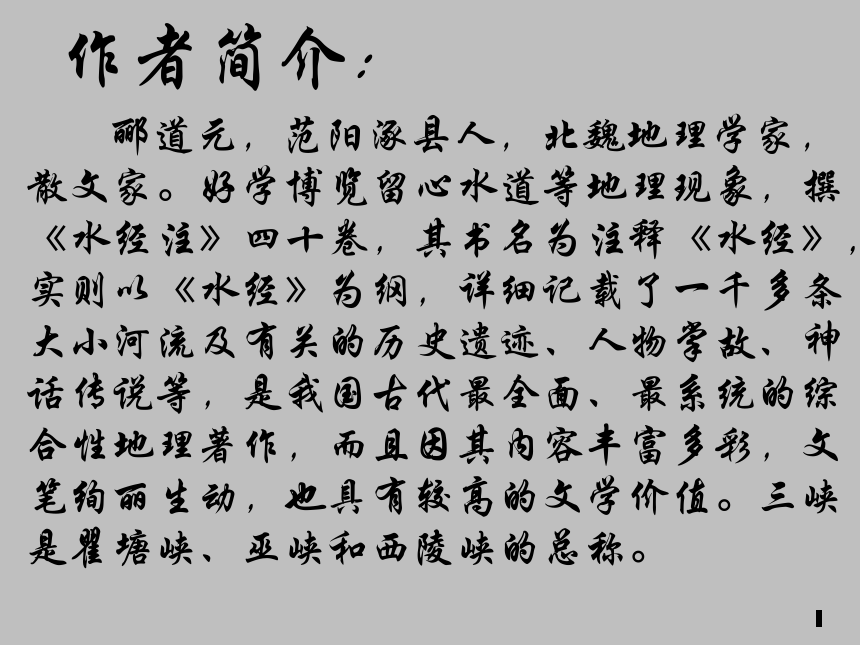 作者简介：
郦道元，范阳涿县人，北魏地理学家，
散文家。好学博览留心水道等地理现象，撰
《水经注》四十卷，其书名为注释《水经》，
实则以《水经》为纲，详细记载了一千多条
大小河流及有关的历史遗迹、人物掌故、神
话传说等，是我国古代最全面、最系统的综
合性地理著作，而且因其内容丰富多彩，文
笔绚丽生动，也具有较高的文学价值。三峡
是瞿塘峡、巫峡和西陵峡的总称。